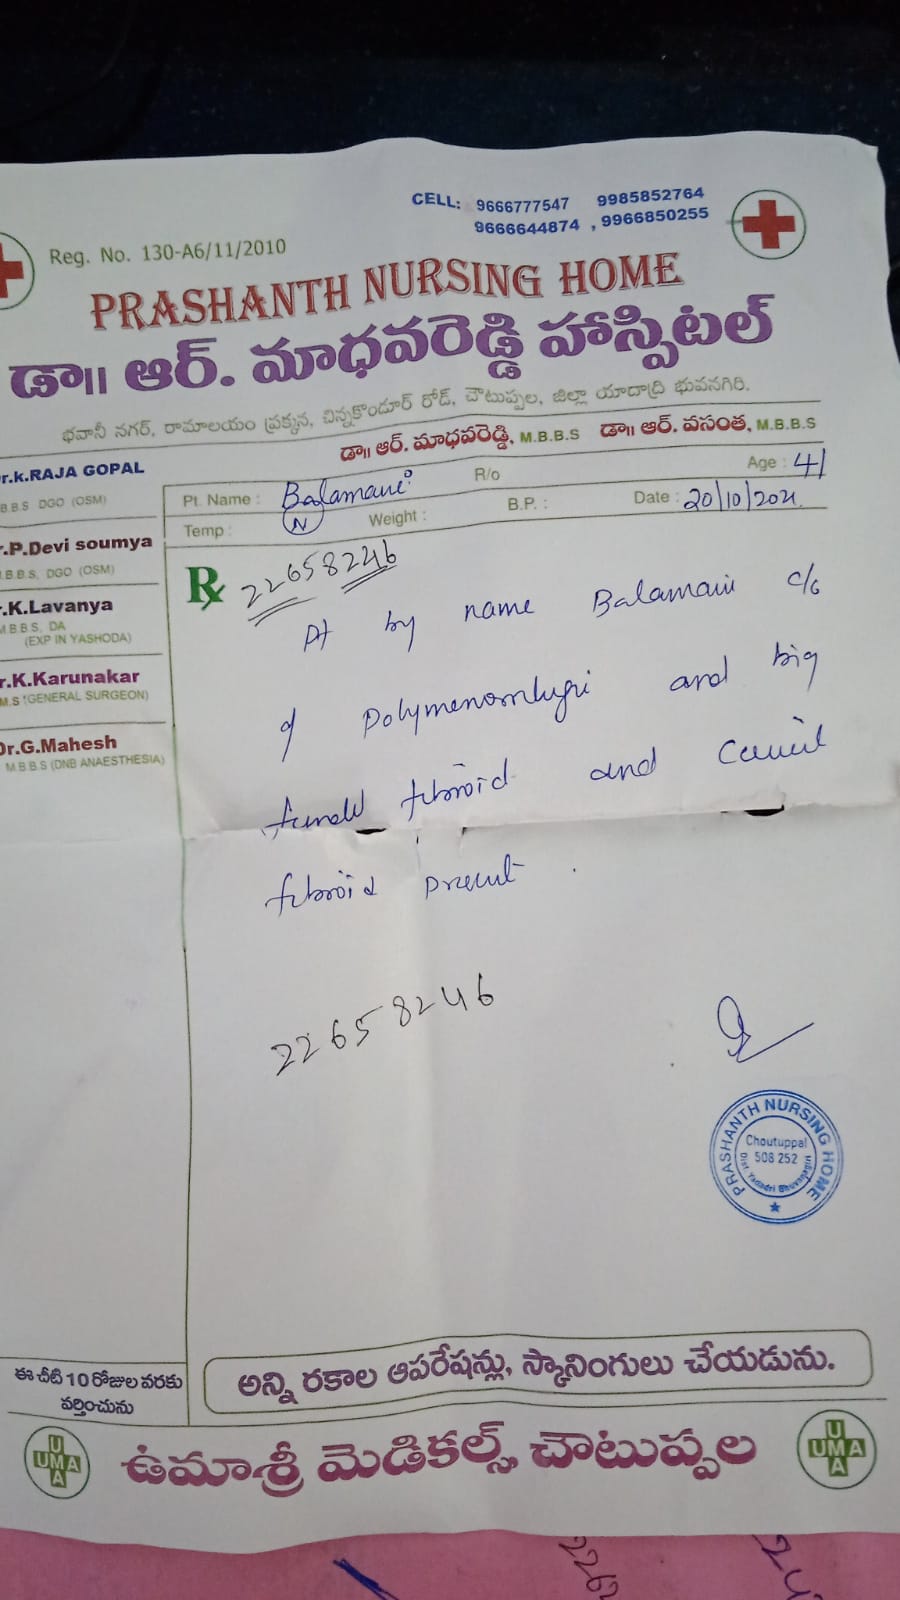 CELL: 9666777547 9985852764
9666644874 , 9966850255
Reg. No. 130-A6/11/2010
PRASHANTH NURSING HOME
డా॥ ఆర్. మాధవరెడ్డి హాస్పిటల్
భవానీ నగర్, రామాలయం ప్రక్కన, చిన్నకొండూర్ రోడ్, చౌటుప్పల, జిల్లా యాదాద్రి భువనగిరి.
డా॥ ఆర్. మాధవరెడ్డి, M.B.B.S డా॥ ఆర్. వసంత, M.B.B.S
r.k.RAJA GOPAL
B.B.S DGO (OSM)
r.P.Devi soumya
M.B.B.S, DGO (OSM)
r.K.Lavanya
M.B.B.S, DA
(EXP IN YASHODA)
r.K.Karunakar
M.S (GENERAL SURGEON)
Dr.G.Mahesh
M.B.B.S (DNB ANAESTHESIA)
Pt. Name : Balamani R/o Age : 41
Temp : N Weight : B.P. : Date : 20/10/2021
Rx 22658246
Pt by name Balamani c/o
of and big
fibroid and
fibroid present.
22658246
PRASHANTH NURSING HOME
Choutuppal
508 252
Dist. Yadadri Bhuvanagiri
ఈ చీటి 10 రోజుల వరకు
వర్తించును
అన్ని రకాల ఆపరేషన్లు, స్కానింగులు చేయడును.
UMA
ఉమాశ్రీ మెడికల్స్, చౌటుప్పల
UMA